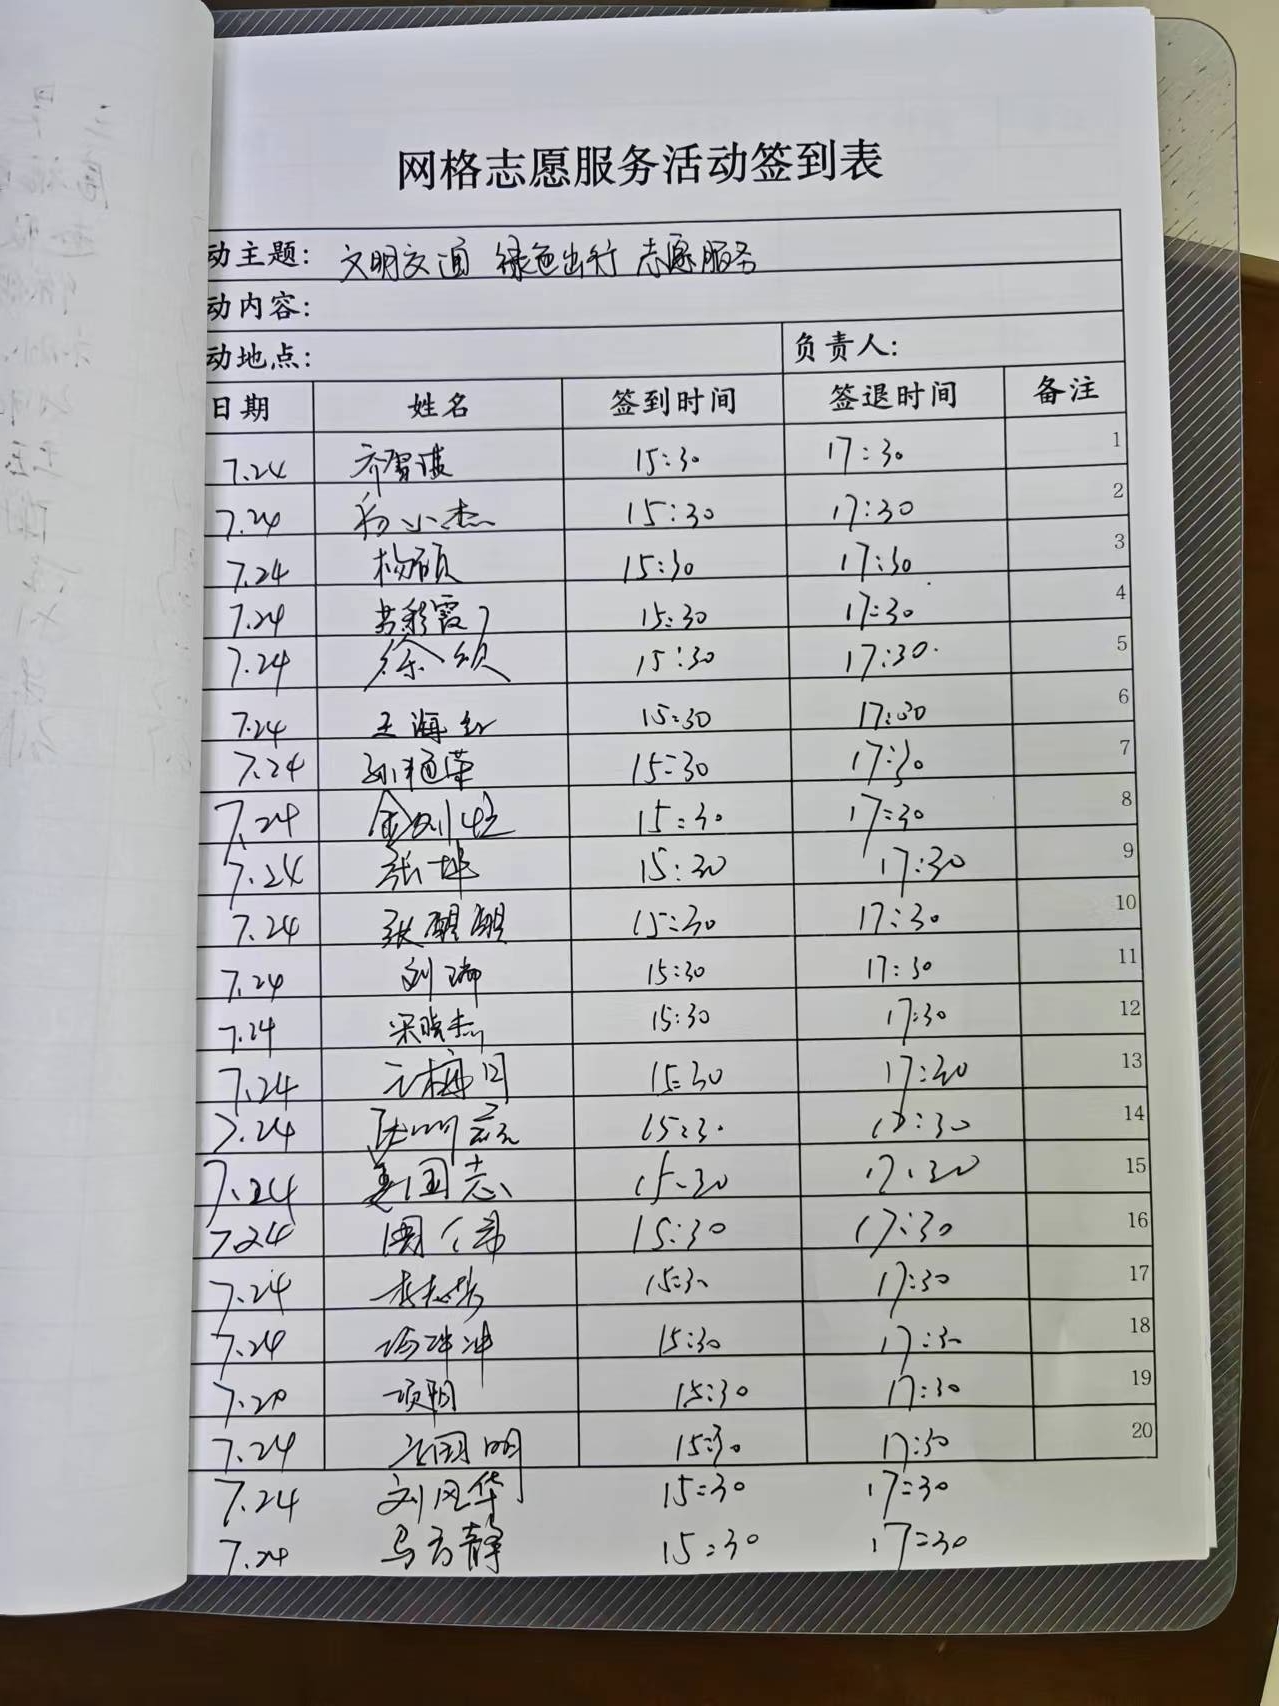 网格志愿服务活动签到表
动主题: 文明交通 绿色出行 志愿服务
动内容:
动地点: 负责人:
日期 姓名 签到时间 签退时间 备注
7.24 乔智波 15:30 17:30 1
7.24 小杰 15:30 17:30 2
7.24 杨硕 15:30 17:30 3
7.24 彩霞 15:30 17:30 4
7.24 徐颂 15:30 17:30 5
7.24 王海红 15:30 17:30 6
7.24 孙桂荣 15:30 17:30 7
7.24 15:30 17:30 8
7.24 张坤 15:30 17:30 9
7.24 张醒醒 15:30 17:30 10
7.24 刘瑞 15:30 17:30 11
7.24 梁晓杰 15:30 17:30 12
7.24 15:30 17:30 13
7.24 15:30 17:30 14
7.24 姜国志 15:30 17:30 15
7.24 15:30 17:30 16
7.24 15:30 17:30 17
7.24 冲冲 15:30 17:30 18
7.20 项阳 15:30 17:30 19
7.24 国明 15:30 17:30 20
7.24 刘凤华 15:30 17:30
7.24 马方静 15:30 17:30